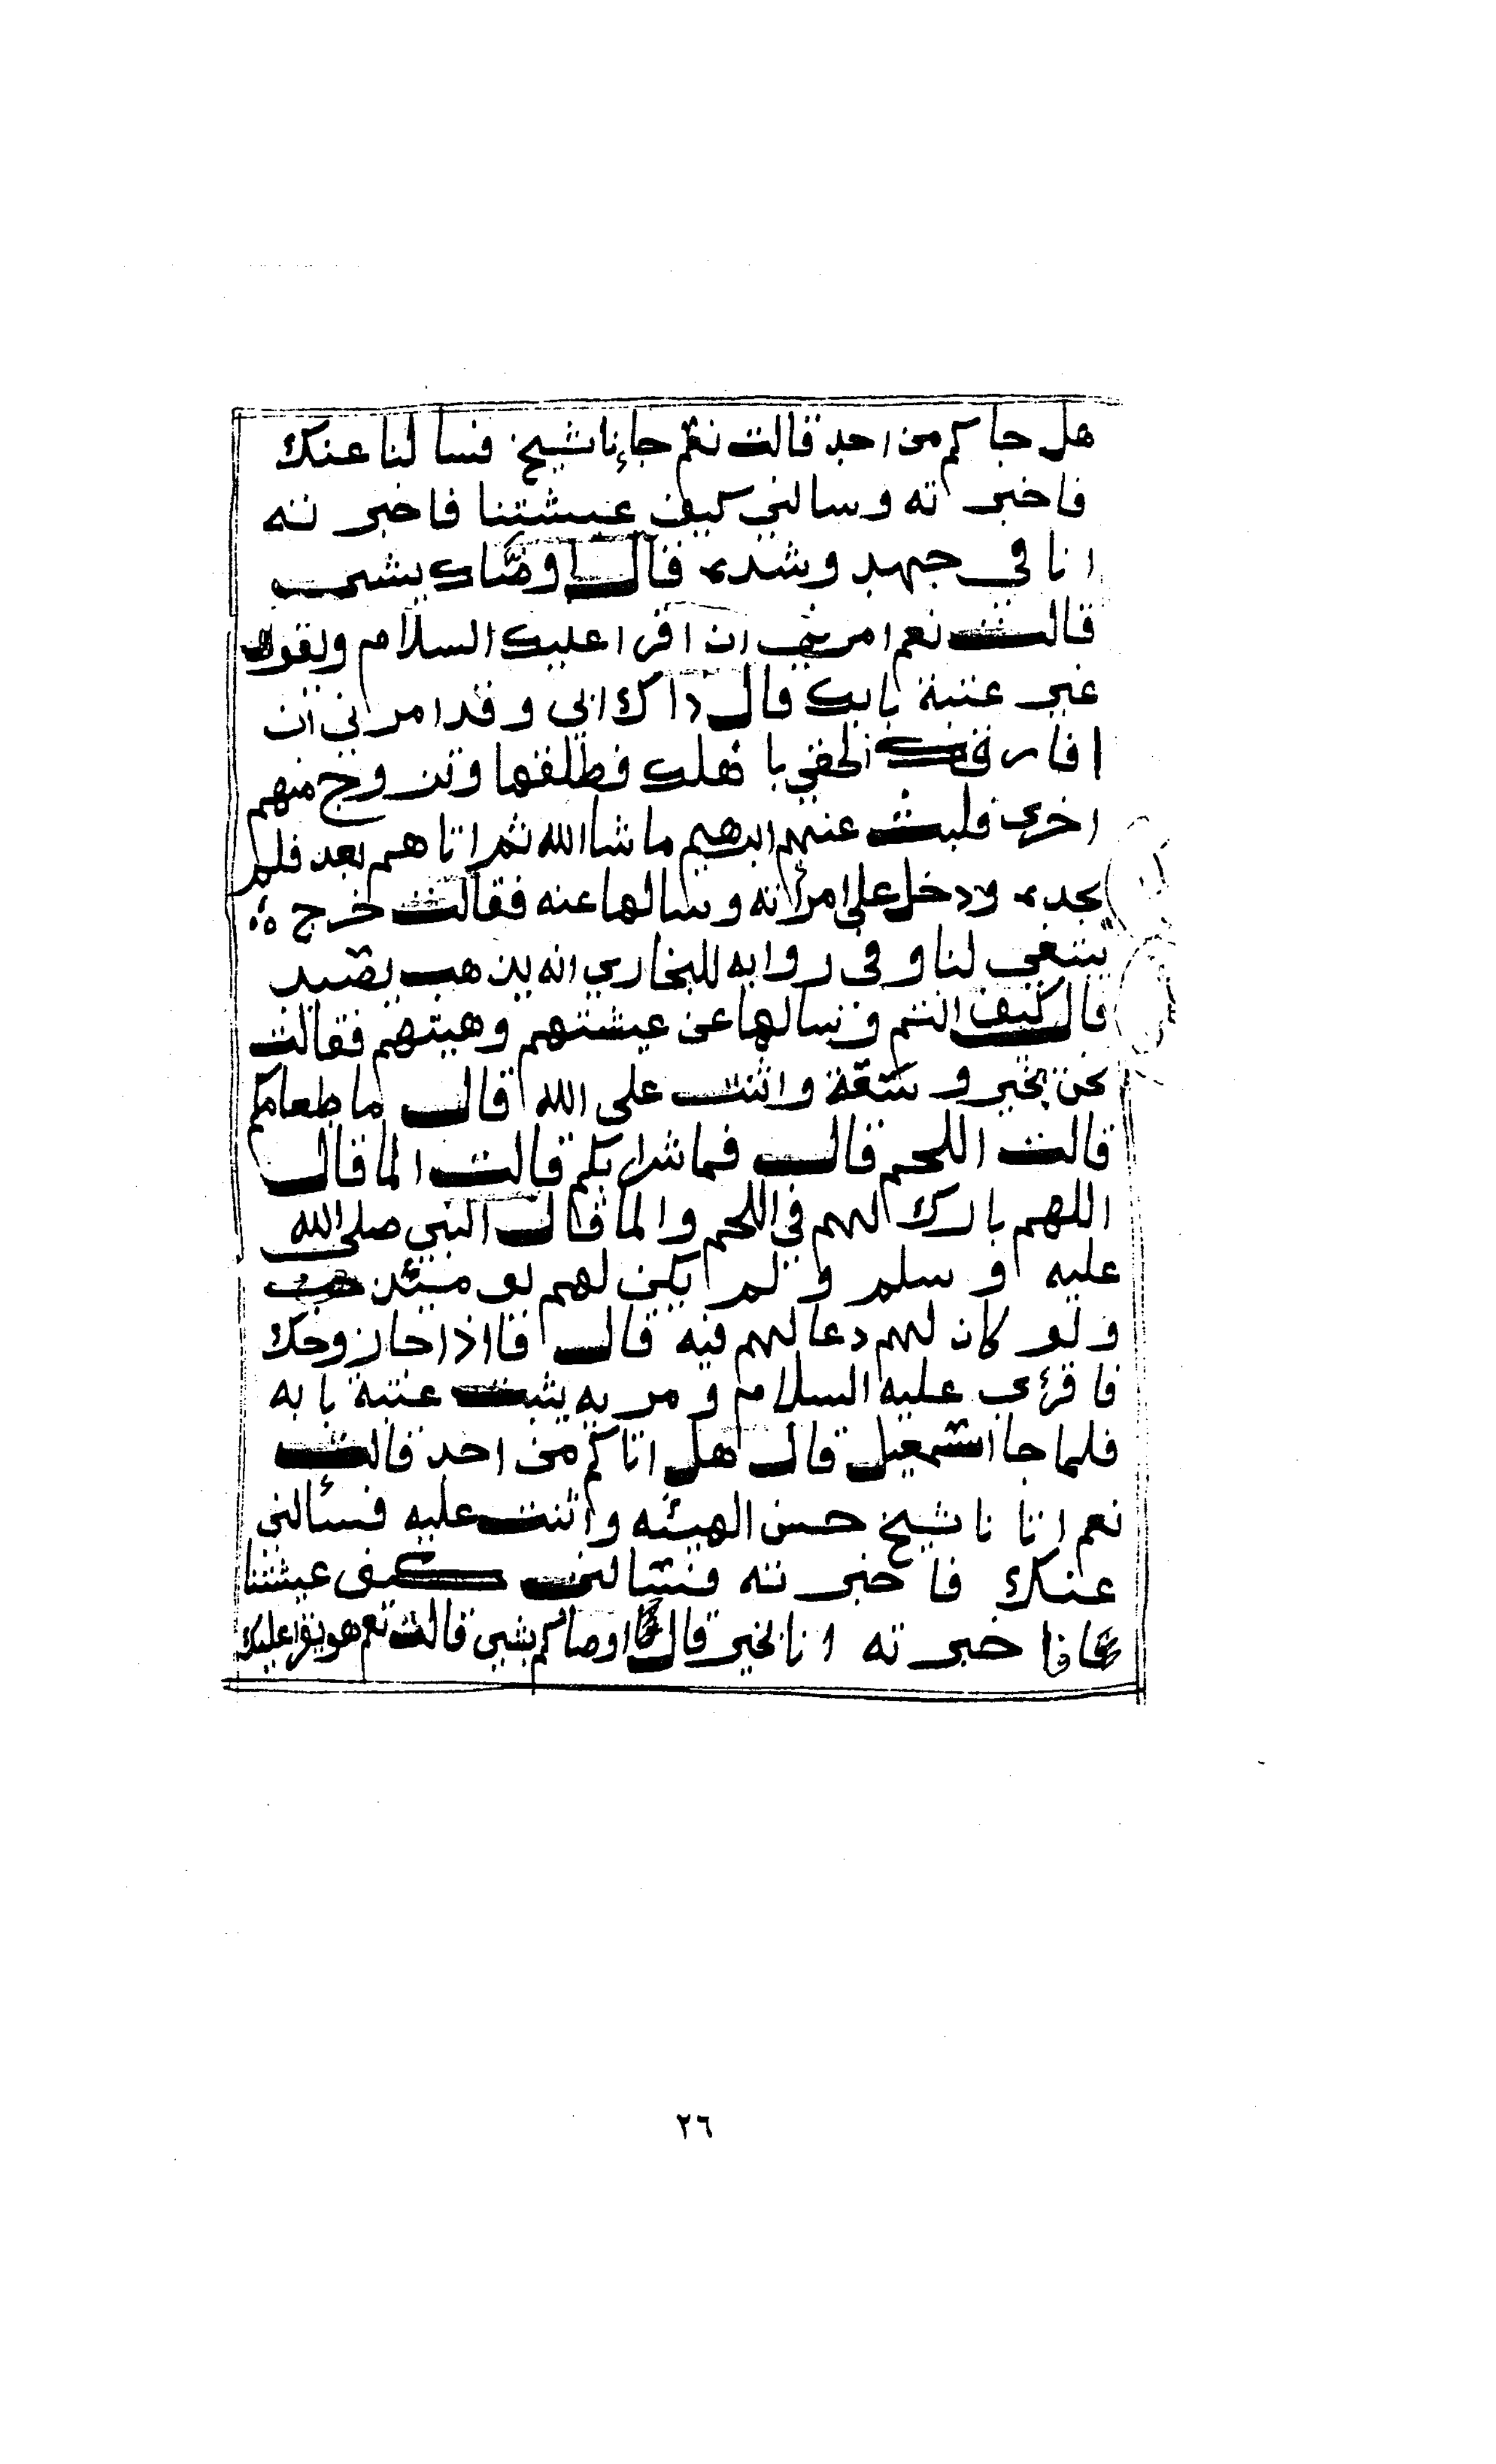 هل جاكم من احد قالت نعم جاءنا شيخ فسالنا عنك
فاخبرته وسالني كيف عيشتنا فاخبرته
انا في جهد وشده قال اوصاك بشي
قالت نعم امرني ان اقرا عليك السلام ويقول
غير عتبة بابك قال ذاك ابي وقد امرني ان
افارقك الحقي باهلك فطلقها وتزوج منهم
اخرى فلبث عنهم ابرهيم ما شا الله ثم اتاهم بعد فلم
يجده ودخل على امراته وسالها عنه فقالت خرج
يبتغي لنا وفي روايه للبخاري انه يذهب يصيد
قال كيف انتم وسالها عن عيشتهم وهيئتهم فقالت
نحن بخير وسعة واثنت على الله قال ما طعامكم
قالت اللحم قال فما شرابكم قالت الما قال
اللهم بارك لهم في اللحم والما قال النبي صلى الله
عليه وسلم ولم يكن لهم يومئذ حب
ولو كان لهم دعا لهم فيه قال فاذا جا زوجك
فاقرئي عليه السلام ومريه يثبت عتبة بابه
فلما جا اسمعيل قال هل اتاكم من احد قالت
نعم اتانا شيخ حسن الهيئه واثنت عليه فسئالني
عنك فاخبرته فسالني كيف عيشتنا
فاخبرته انا بخير قال اوصاكم بشي قالت نعم هو يقرا عليك
٢٦